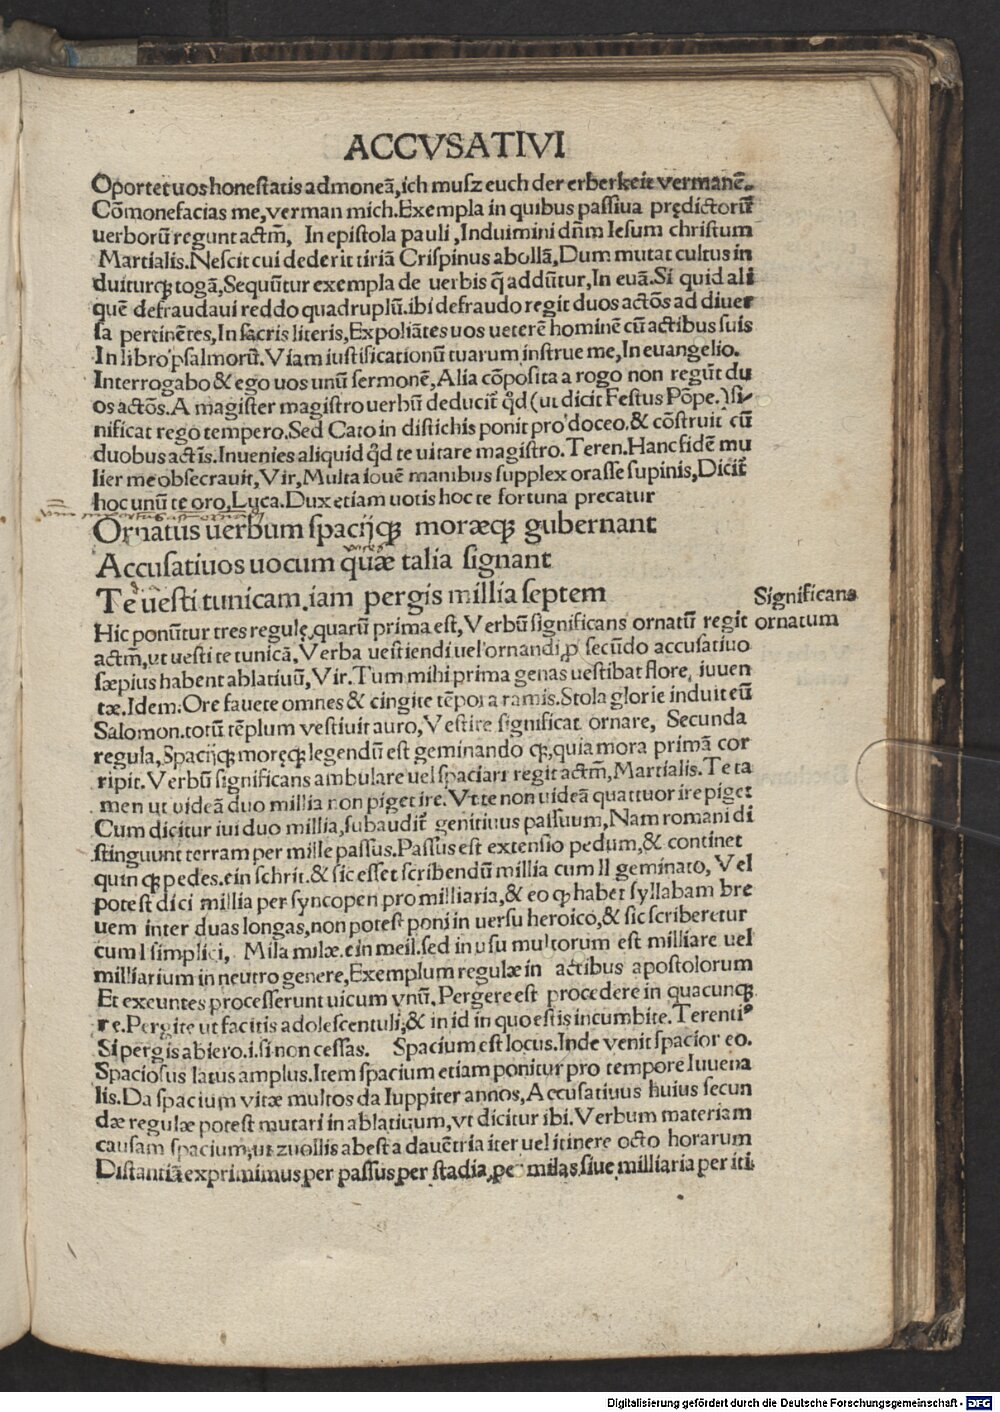 ACCVSATIVI
Oportet uos honestatis admoneã,ich musz euch der erberkeit vermanẽ.
Cõmonefacias me,verman mich.Exempla in quibus passiua prędictorũ
uerborũ regunt actm̃, In epistola pauli,Induimini dñm Iesum christum
Martialis.Nescit cui dederit tiriã Crispinus abollã,Dum mutat cultus in
duiturqꝫ togã,Sequũtur exempla de uerbis q̃ addũtur,In euã.Si quid ali
quẽ defraudaui reddo quadruplũ.ibi defraudo regit duos actõs ad diuer
sa pertinẽtes,In sacris literis,Expoliãtes uos ueterẽ hominẽ cũ actibus suis
In libro psalmorũ.Viam iustificationũ tuarum instrue me,In euangelio.
Interrogabo & ego uos unũ sermonẽ,Alia cõposita a rogo non regũt du
os actõs.A magister magistro uerbũ deducit̃ qđ (ut dicit Festus Põpe.)si-
nificat rego tempero.Sed Cato in distichis ponit pro doceo.& cõstruit cũ
duobus actĩs.Inuenies aliquid qđ te uitare magistro.Teren.Hanc fidẽ mu
lier me obsecrauit,Vir,Multa iouẽ manibus supplex orasse supinis,Dicit̃
hoc unũ te oro,Luca.Dux etiam uotis hoc te fortuna precatur
Ornatus uerbum spacijqꝫ moræqꝫ gubernant
Accusatiuos uocum quæ talia signant
Te uesti tunicam.iam pergis millia septem
Significans
ornatum
Hic ponũtur tres regulę,quarũ prima est,Verbũ significans ornatũ regit
actm̃,ut uesti te tunicã,Verba uestiendi uel ornandi ꝓ secũdo accusatiuo
sæpius habent ablatiuũ,Vir.Tum mihi prima genas uestibat flore, iuuen
tæ.Idem.Ore fauete omnes & cingite tẽpora ramis.Stola glorie induit eũ
Salomon.totũ tẽplum vestiuit auro,Vestire significat ornare, Secunda
regula,Spacijqꝫ moręqꝫ legendũ est geminando qꝫ,quia mora primã cor
ripit.Verbũ significans ambulare uel spaciari regit actm̃,Martialis.Te ta
men ut uideã duo millia non piget ire.Vt te non uideã quattuor ire piget
Cum dicitur iui duo millia,subaudit̃ genitiuus passuum,Nam romani di
stinguunt terram per mille passus.Passus est extensio pedum,& continet
quinqꝫ pedes.ein schrit.& sic esset scribendũ millia cum ll geminato, Vel
potest dici millia per syncopen pro milliaria,& eo ꝙ habet syllabam bre
uem inter duas longas,non potest poni in uersu heroico,& sic scriberetur
cum l simplici, Mila milæ.ein meil.sed in usu multorum est milliare uel
milliarium in neutro genere,Exemplum regulæ in actibus apostolorum
Et exeuntes processerunt uicum vnũ.Pergere est procedere in quacunqꝫ
re.Pergite ut facitis adolescentuli,& in id in quo estis incumbite.Terentiꝰ
Si pergis abiero.i.si non cessas. Spacium est locus.Inde venit spacior eo.
Spaciosus latus amplus.Item spacium etiam ponitur pro tempore Iuuena
lis.Da spacium vitæ multos da Iuppiter annos,Accusatiuus huius secun
dæ regulæ potest mutari in ablatiuum,vt dicitur ibi.Verbum materiam
causam spacium,ut zuollis abest a dauẽtria iter uel itinere octo horarum
Distantiã exprimimus per passus per stadia,per milas siue milliaria per iti
Digitalisierung gefördert durch die Deutsche Forschungsgemeinschaft - DFG